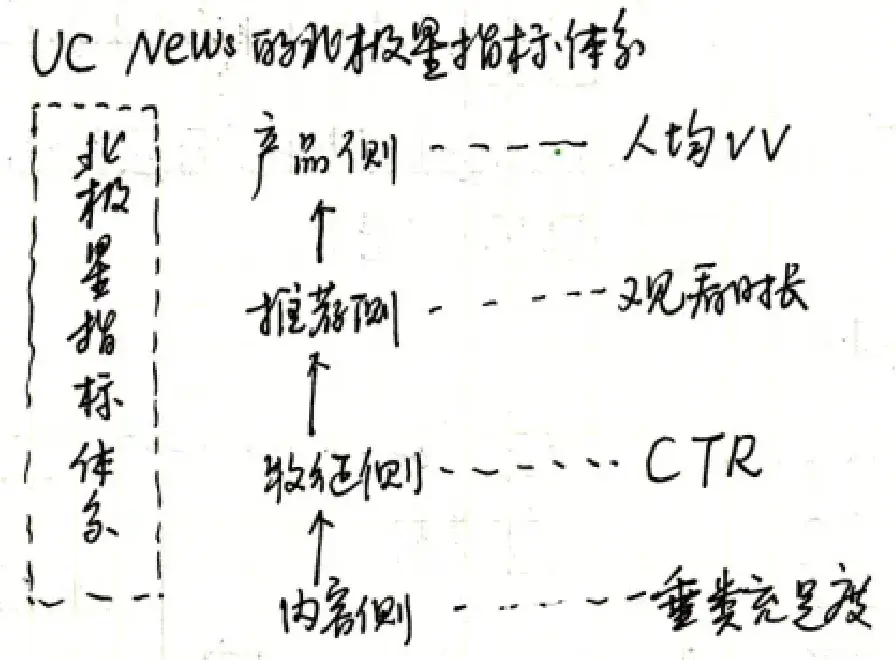 UC News的北极星指标体系
北极星指标体系
产品侧 人均VV
推荐侧 观看时长
侧 CTR
内容侧 垂类充足度